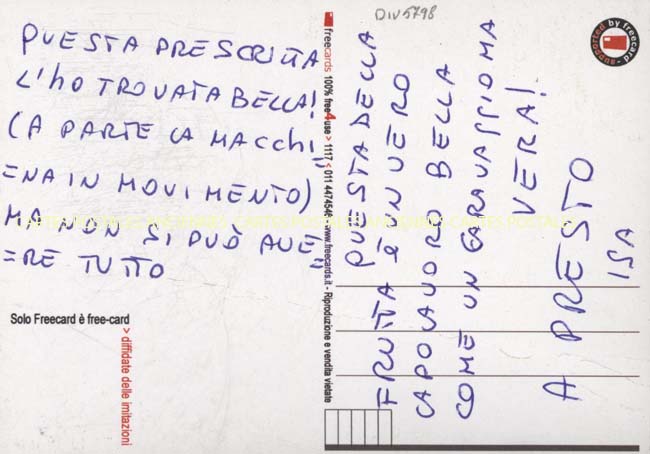 QUESTA PRESCRITTA
L'HO TROVATA BELLA!
(A PARTE LA MACCHI
=NA IN MOVIMENTO)
MA NON SI PUÒ AVE
=RE TUTTO
Solo Freecard è free-card
> diffidate delle imitazioni
freecards 100% free4use > 1117 < 011 4474546 - www.freecards.it - Riproduzione e vendita vietate
DIV5798
supported by freecard
QUESTA DELLA
FRUTTA È UN VERO
CAPOLAVORO BELLA
COME UN CARAVAGGIO MA
VERA!
A PRESTO
ISA